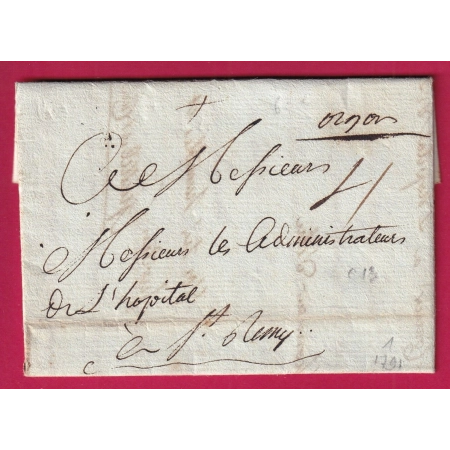 orgon
A Messieurs
4
Messieurs les Administrateurs
de L'hopital
à St. Remy
1791